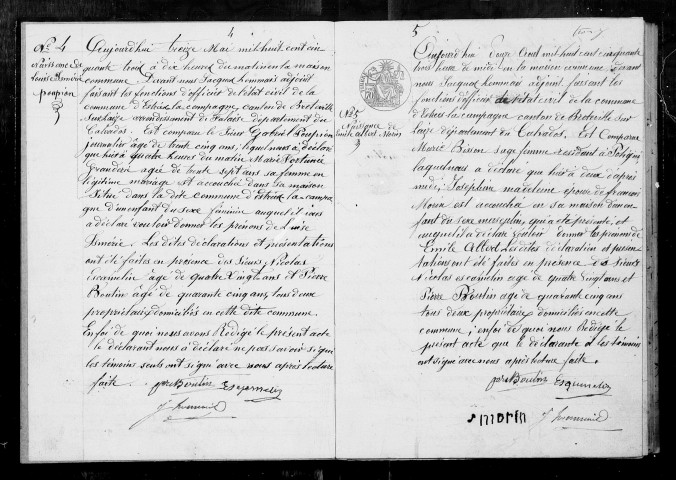 4
N° 4
Naissance de
Louise Armérie
poupion
Aujourd'hui treize Mai mil huit cent cin
quante trois à dix heures du matin en la maison
commune. Devant nous Jacques hommais adjoint
faisant les fonctions d'officier de l'état civil de la
commune d'Estrées la campagne, canton de Bretteville
Sur laize arrondissement de falaise département du
Calvados. Est comparu le Sieur Gabriel Poupion
journalier âgé de trente cinq ans, lequel nous a déclaré
que hier à quatre heures du matin Marie Fortunée
âgée de trente sept ans sa femme en
légitime mariage est accouchée dans sa maison
Située dans la dite commune d'Estrées la campa
gne d'un enfant du sexe féminin auquel il nous
a déclaré vouloir donner les prénoms de Louise
Armérie. Les dites déclarations et présentations
ont été faites en présence des Sieurs Nicolas
âgé de quatre vingt ans et Pierre
Boutin âgé de quarante cinq ans, tous deux
propriétaires domiciliés en cette dite commune.
En foi de quoi nous avons Rédigé le présent acte
le déclarant nous a déclaré ne pas savoir signer
les témoins seuls ont signé avec nous après lecture
faite. pre Boutin
5
N° 5
Naissance de
Emile Albert Morin
Aujourd'hui douze Aout mil huit cent cinquante
trois heure de midi en la maison commune Devant
nous Jacques hommais adjoint faisant les
fonctions d'officier de l'état civil de la commune
d'Estrées la campagne canton de Bretteville Sur
laize département du Calvados. Est Comparue
Marie Bisson sage femme résidant à Potigny
laquelle nous a déclaré que hier à deux d'après
midi; Josephine madeleine épouse de francois
Morin est accouchée en sa maison d'un en
fant du sexe masculin, qui a été présenté, et
auquel il a déclaré vouloir donner les prénoms de
Emile Albert Les dites déclaration et présen
tation ont été faites en présence des Sieurs
Nicolas âgé de quatre Vingt ans et
Pierre Boutin âgé de quarante cinq ans
tous deux propriétaires domiciliés en cette
commune; en foi de quoi nous Rédigé le
présent acte que le déclarante et les témoins
ont signé avec nous après lecture faite.
pre Boutin
morin